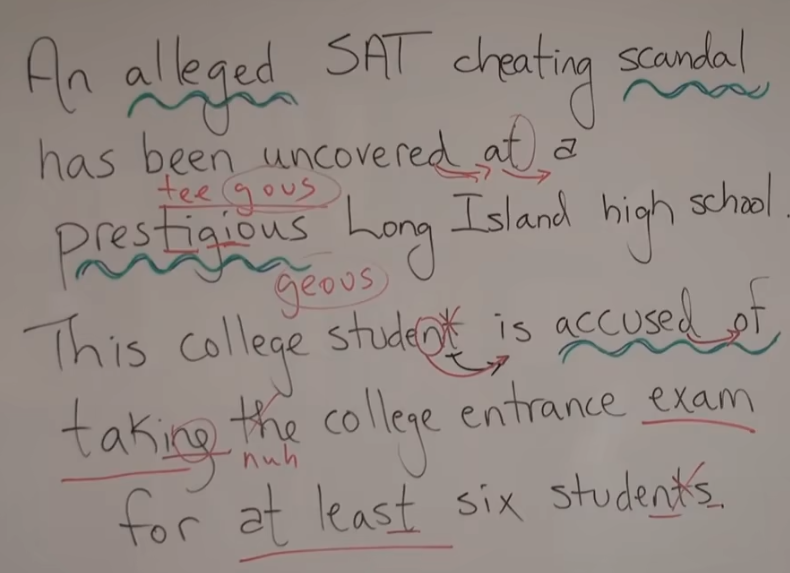 An alleged SAT cheating scandal
has been uncovered at a
tee gous
prestigious Long Island high school.
geous
This college student is accused of
taking the college entrance exam
nuh
for at least six students.